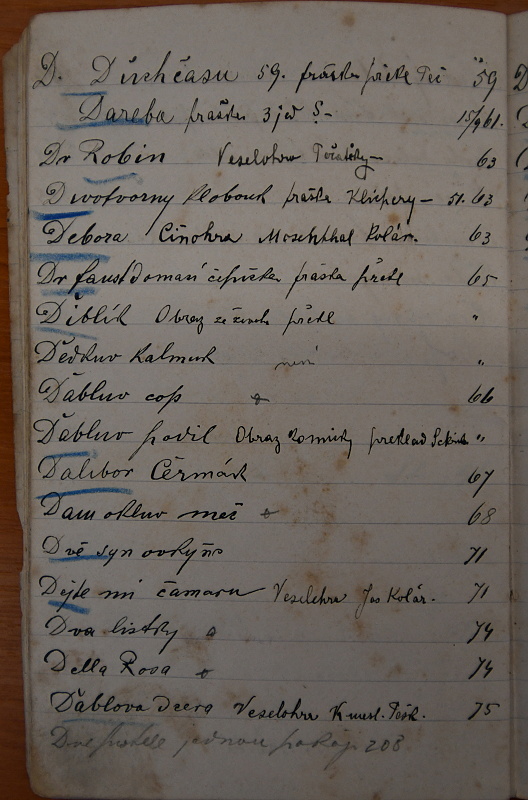 D. Duch času 59. fraška překl "59
Dareba fraška 3 jed 15/9 61.
Dr Robin Veselohra 63
Divotvorny klobouk fraška Klicpery — 51. 63
Debora Činohra Mosenthal Kolár. 63
Dr faust domaci čepička fraška překl 65
Diblík Obraz ze života překl "
Dědkuv Kalmuk není "
Dábluv cop 66
Dábluv podil Obraz komický preklad "
Dalibor Čermák 67
Damokluv meč 68
Dvě 71
Dějte mi čamaru Veselohra Jos Kolár. 71
Dva listky 74
Della Rosa 74
Dáblova dcera Veselohra 75
Dvě jednou pokoj 208